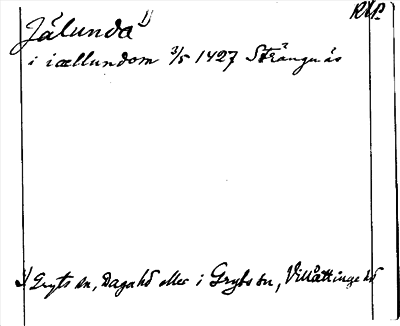 RAP.
Jälunda 1)
i iællundom 3/5 1427 Strängnäs
1) Gryts sn, Daga hd eller i Gryts sn, Villåttinge hd